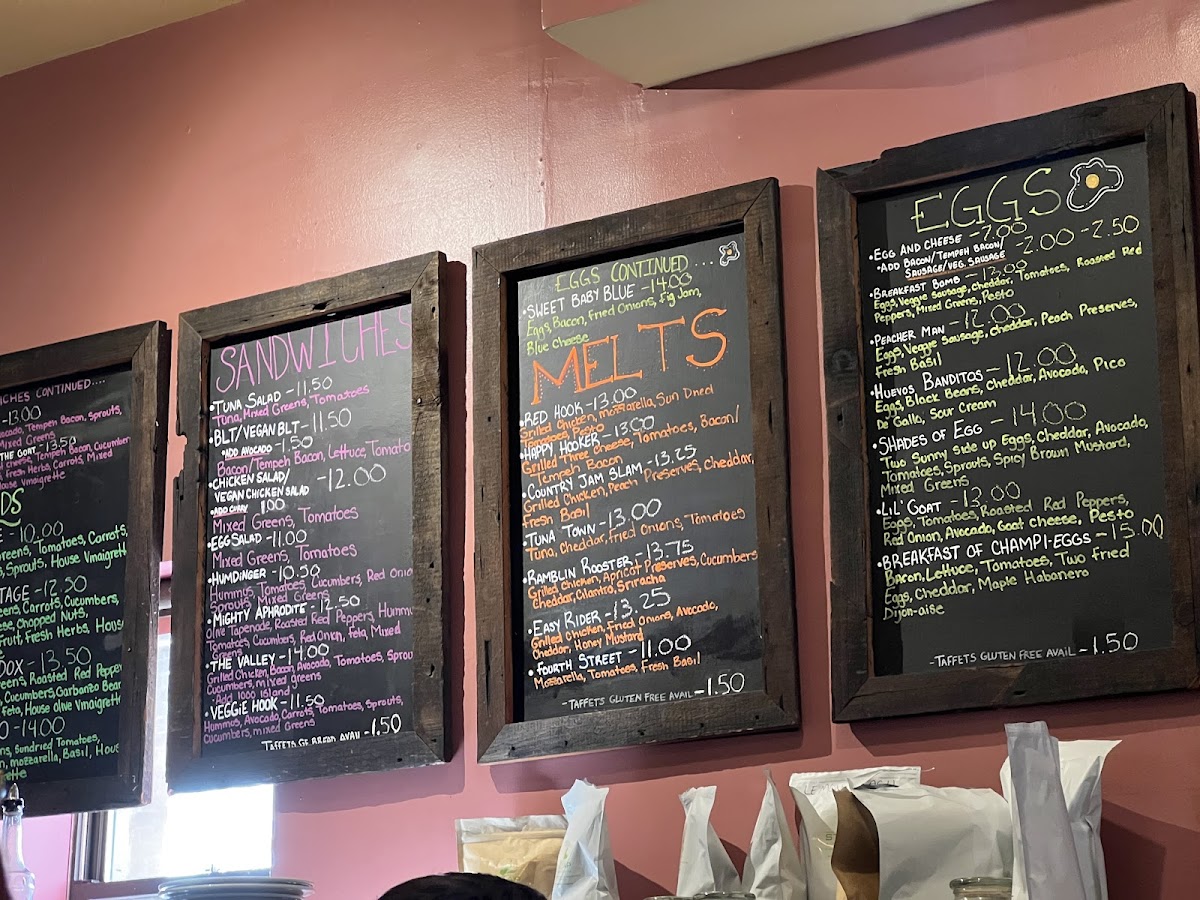 ICHES CONTINUED....
-13.00
ocado, Tempeh Bacon, Sprouts,
Mixed Greens
THE GOAT -13.50
cheese, Tempeh Bacon, Cucumber
Fresh Herbs, Carrots, Mixed
House Vinaigrette
DS
-10.00
reens, Tomatoes, Carrots,
s, Sprouts, House Vinaigrette
TAGE -12.50
eens, Carrots, Cucumbers,
ese, Chopped Nuts,
Fruit, Fresh Herbs, House
Vinaigrette
OOX -13.50
eens, Roasted Red Pepper
Cucumbers, Garbanzo Bean
Feta, House Olive Vinaigrette
O -14.00
ns, Sundried Tomatoes,
n, Mozzarella, Basil, Hous
rette
SANDWICHES
•TUNA SALAD -11.50
Tuna, Mixed Greens, Tomatoes
•BLT/VEGAN BLT -11.50
•ADD AVOCADO -1.50
Bacon/Tempeh Bacon, Lettuce, Tomato
•CHICKEN SALAD/
VEGAN CHICKEN SALAD -12.00
•ADD CURRY 1.00
Mixed Greens, Tomatoes
•EGG SALAD -11.00
Mixed Greens, Tomatoes
•HUMDINGER -10.50
Hummus, Tomatoes, Cucumbers, Red Onio
Sprouts, Mixed Greens
•MIGHTY APHRODITE -12.50
Olive Tapenade, Roasted Red Peppers, Hummu
Tomatoes, Cucumbers, Red Onion, Feta, Mixed
Greens
•THE VALLEY -14.00
Grilled Chicken, Bacon, Avocado, Tomatoes, Sprou
Cucumbers, mixed greens
-Add 1000 island
•VEGGIE HOOK -11.50
Hummus, Avocado, Carrots, Tomatoes, Sprouts,
Cucumbers, mixed Greens
TAFFETS GF BREAD AVAIL -1.50
EGGS CONTINUED ....
•SWEET BABY BLUE -14.00
Eggs, Bacon, Fried Onions, Fig Jam,
Blue cheese
MELTS
•RED HOOK -13.00
Grilled Chicken, Mozzarella, Sun Dried
Tomatoes, Pesto
•HAPPY HOOKER -13.00
Grilled Three Cheese, Tomatoes, Bacon/
Tempeh Bacon
•COUNTRY JAM SLAM -13.25
Grilled Chicken, Peach Preserves, Cheddar,
Fresh Basil
•TUNA TOWN -13.00
Tuna, Cheddar, Fried Onions, Tomatoes
•RAMBLIN ROOSTER -13.75
Grilled Chicken, Apricot Preserves, Cucumbers
Cheddar, Cilantro, Sriracha
•EASY RIDER -13.25
Grilled Chicken, Fried Onions, Avocado,
Cheddar, Honey Mustard
•FOURTH STREET -11.00
Mozzarella, Tomatoes, Fresh Basil
-TAFFETS GLUTEN FREE AVAIL -1.50
EGGS
•EGG AND CHEESE -7.00
•ADD BACON/TEMPEH BACON/
SAUSAGE/VEG. SAUSAGE -2.00 -2.50
•BREAKFAST BOMB -13.00
Eggs, Veggie Sausage, Cheddar, Tomatoes, Roasted Red
Peppers, Mixed Greens, Pesto
•PEACHER MAN -12.00
Eggs, Veggie Sausage, cheddar, Peach Preserves,
Fresh Basil
•HUEVOS BANDITOS -12.00
Eggs, Black Beans, Cheddar, Avocado, Pico
De Gallo, Sour Cream
•SHADES OF EGG -14.00
Two Sunny side up Eggs, Cheddar, Avocado,
Tomatoes, Sprouts, Spicy Brown Mustard,
Mixed Greens
•LIL' GOAT -13.00
Eggs, Tomatoes, Roasted Red Peppers,
Red Onion, Avocado, Goat Cheese, Pesto
•BREAKFAST OF CHAMPI-EGGS -15.00
Bacon, Lettuce, Tomatoes, Two Fried
Eggs, Cheddar, Maple Habanero
Dijon-aise
-TAFFETS GLUTEN FREE AVAIL -1.50